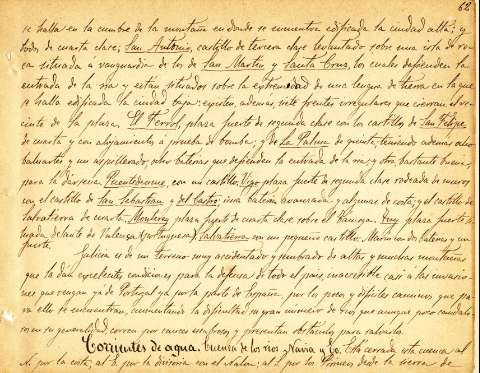 62
se halla en la cumbre de la montaña en donde se encuentra edificada la ciudad alta; y
todos de cuarta clase; San Antonio, castillo de tercera clase levantado sobre una isla de ro-
ca situada á vanguardia de los de San Martin y Santa Cruz, los cuales defienden la
entrada de la ria y estan situados sobre la extremidad de una lengua de tierra en la que
se halla edificada la ciudad baja: existen, ademas, siete frentes irregulares que cierran el re-
cinto de la plaza. El Ferrol, plaza fuerte de segunda clase con los castillos de San Felipe
de cuarta y con alojamientos á prueba de bomba; y de La Palma de frente, teniendo ademas ocho
baluartes y un aspillerado, ocho baterias que defienden la entrada de la ria y otra, bastante buena,
para la Puentedeume, con un castillo. Vigo plaza fuerte de segunda clase rodeada de muros
con el castillo de San Sebastian y del Castro; una bateria avanzada y algunas de costa; y el castillo de
Salvatierra de cuarta. Monterey plaza fuerte de cuarta clase sobre el Tamega. Tuy plaza fuerte si-
tuada delante de Valenza (portuguesa). Salvatierra con un pequeño castillo. Marin con dos baterias y un
fuerte.
Galicia es de un terreno muy accidentado y sembrado de altas y muchas montañas
que la dan excelentes condiciones para la defensa de todo el pais, inaccesible casi á las invasio-
nes que vengan ya de Portugal ya por la parte de España, por los pocos y dificiles caminos que pa-
ra ello se encuentran, aumentando la dificultad su gran numero de rios que aunque poco caudalo-
sos en su generalidad, corren por cauces escabrosos y presentan obstaculos para salvarlos.
Corrientes de agua. Cuenca de los rios Navia y Eo. Está cerrada esta cuenca al
N. por la costa, al E. por la divisoria con el Nalon, al S. por los Pirineos desde la sierra de